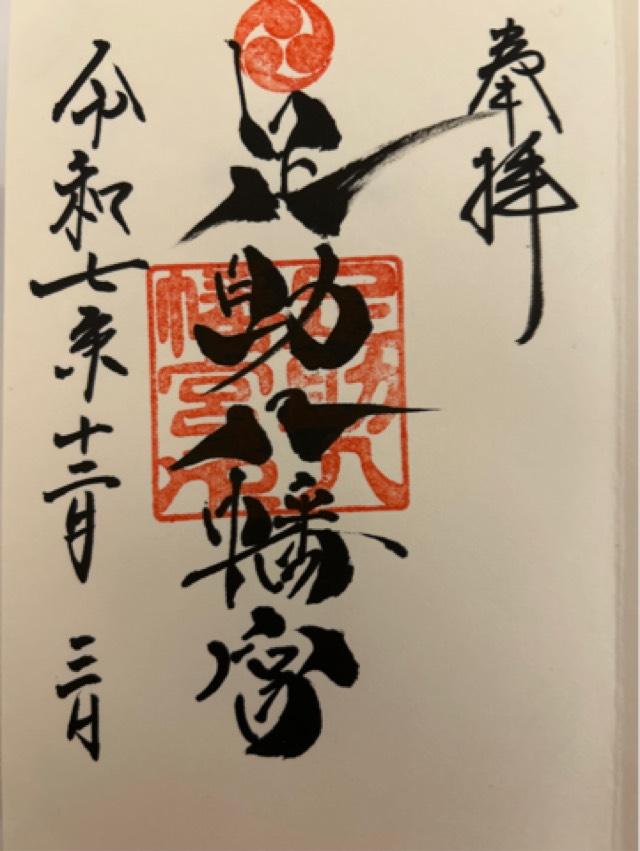 奉拝
足助八幡宮
令和七年十二月三日